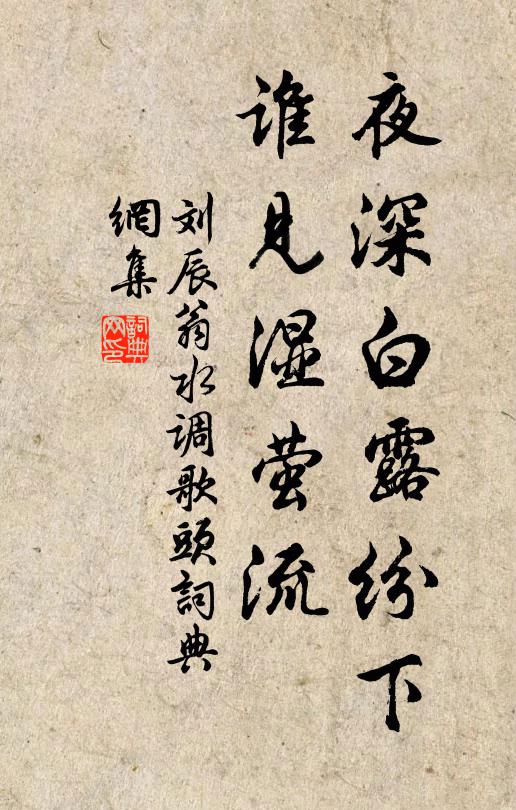 夜深白露纷下
谁见湿萤流
刘辰翁水调歌头詞典
網集
詞典
网印